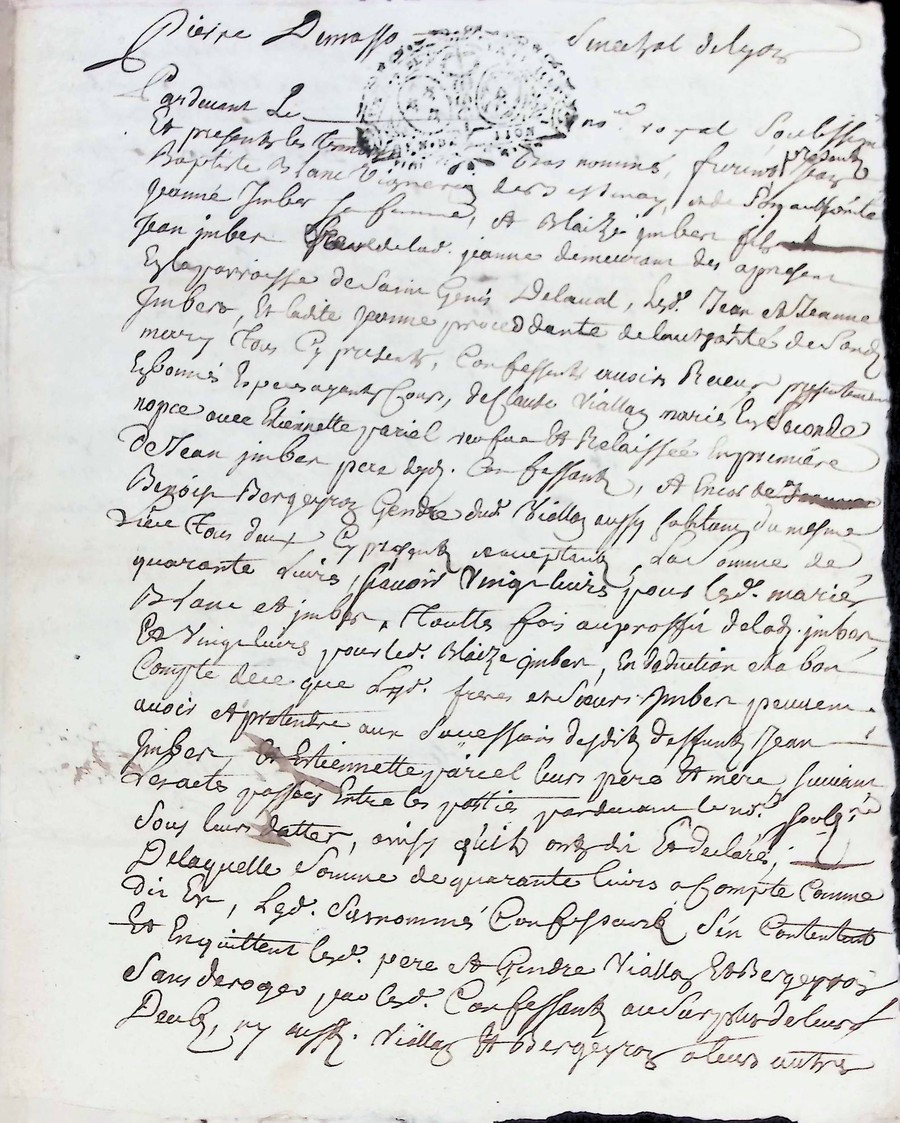 Pierre Demasso Senechal de lyon
Pardevant Le no.re royal Soubssigné
Et presents les tesmoins bas nommés, furent presents Jean
Baptiste Blanc Vigneron
Jeanne Imber sa femme, et Blaize imber fils
Jean imber frere de lad. jeanne demeurant des apresent
En la parroisse de Saint Genis Delaval, lesd. Jean et Jeanne
Imbero, Et ladite Jeanne procedante de lauthorité de Sond.
mary Tous Cy presents, Confessants avoir Receu presentement
En bonnes Especes ayants Cours, de Claude Viallon marié En Seconde
nopce avec Etiennette pariel veufve Et Relaissée En première
de Jean imber pere desd. Confessants, et Encor de
Benoist Bergeyron Gendre dud. Viallon aussy habitant du mesme
Lieu Tous deux Cy presents acceptants, La Somme de
quarante livres, scavoir Vingt livres pour lesd. mariés
Blanc et imber, Touttes fois au proffit de lad. imber
Et Vingt livres pour led. Blaize imber, En deduction et a bon
Compte de ce que lesd. freres et Soeurs Imber peuvent
avoir et pretendre aux Successions desdits deffunts Jean
Imber, et Estiennette pariel leurs pere Et mère, suivant
les actes passés Entre les parties pardevant le no.re soubsg.né
Sous leurs dattes, ainsy qu'ils onts dit Et declaré;
De laquelle Somme de quarante livres a Compte Comme
Dit Est, lesd. Surnommés Confessants S'en Contentent
Et En quittent lesd. pere et Gendre Viallon Et Bergeyron
Sans deroger par lesd. Confessants au Surplus de leurs
Deubs, ny auss. Viallon Et Bergeyron a leurs autres